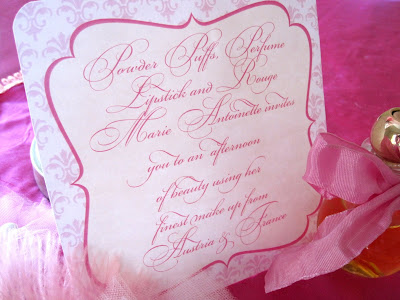 Powder Puffs, Perfume
Lipstick and Rouge
Marie Antoinette invites
you to an afternoon
of beauty using her
finest make up from
Austria & France